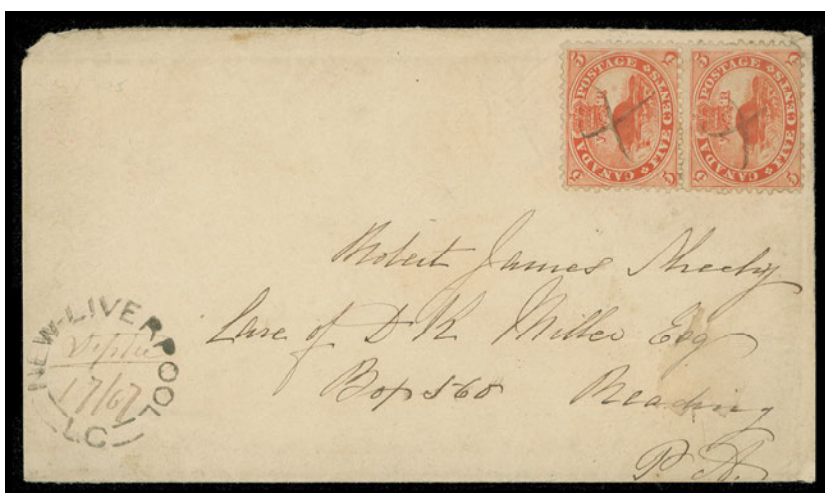 CANADA POSTAGE FIVE CENTS
5 5 5 5
CANADA POSTAGE FIVE CENTS
5 5 5 5
Robert James Sheehy
Care of D R Miller Esq
Box 560 Reading
P. A.
NEW-LIVERPOOL
17/67
L.C